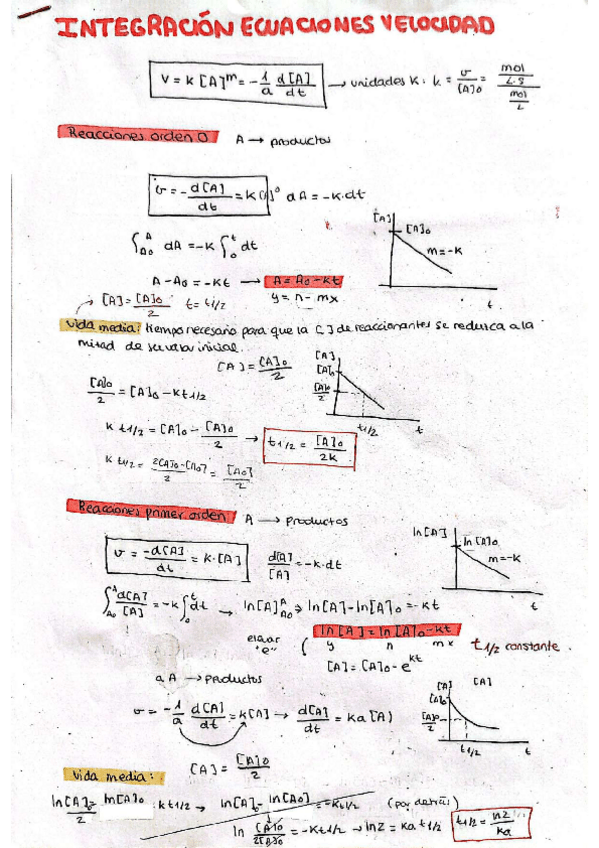 INTEGRACIÓN ECUACIONES VELOCIDAD
V = K [A]^m = - 1/a d[A]/dt → unidades K: k = v/[A]o = mol/L·s / mol/L
Reacciones orden 0 A → productos
v = - d[A]/dt = K[A]^0 dA = -K·dt
[A]
[A]o
m = -K
t
∫_{Ao}^{A} dA = -K ∫_0^t dt
A - Ao = -Kt → A = Ao - Kt
[A] = [A]o/2 t = t1/2 y = n - mx
Vida media: tiempo necesario para que la [ ] de reaccionantes se reduzca a la
mitad de su valor inicial.
[A] = [A]o/2
[A]
[A]o
[A]o/2
t1/2
t
[A]o/2 = [A]o - Kt1/2
K t1/2 = [A]o - [A]o/2 → t1/2 = [A]o/2K
K t1/2 = 2[A]o - [Ao]/2 = [Ao]/2
Reacciones primer orden A → productos
v = -d[A]/dt = K·[A] d[A]/[A] = -K·dt
ln[A]
ln [A]o
m = -K
t
∫_{Ao}^{A} d[A]/[A] = -K ∫_0^t dt → ln[A]^A_{Ao} → ln[A] - ln[A]o = -Kt
ln [A] = ln [A]o - Kt
"e" ( y n mx t1/2 constante.
[A] = [A]o - e^{kt}
a A → productos
v = - 1/a d[A]/dt = K[A] → d[A]/dt = Ka[A)
[A] [A]
[A]o
[A]o/2
t1/2
t
Vida media: [A] = [A]o/2
ln[A]= ln[A]o : Kt1/2 → ln[A]- ln[Ao] = -Kt1/2
ln [A]o/2[A]o = -Kt1/2 → ln2 = Ka t1/2 t1/2 = ln2/Ka